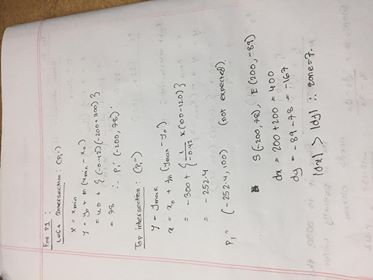 For P1 :
Left Intersection : (P₁')
x = xmin
y = y₀ + m (xmin - x₀)
= 120 + {(-0.42) (-200+300)}
= 78 ∴ P₁' (-200, 78)
Top intersection : (P₁'')
y = ymax
x = x₀ + 1/m (ymax - y₀)
= -300 + { 1/-0.42 x (100-120) }
= -252.4
P₁'' (-252.4, 100) (not expected)
S (-200, 78), E (200, -89)
dx = 200 + 200 = 400
dy = -89 - 78 = -167
|dx| > |dy| ∴ zone = 7.